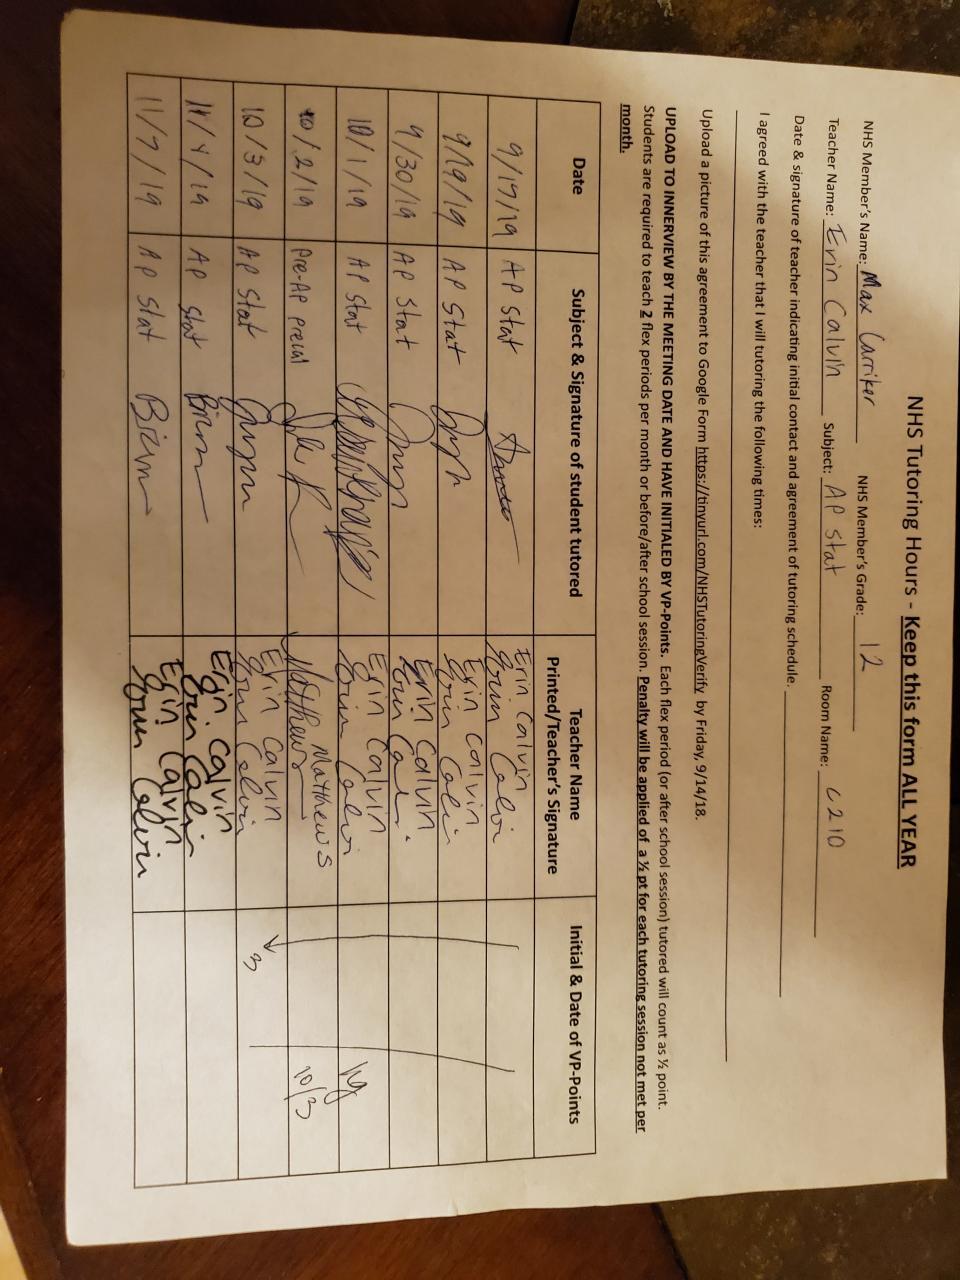 NHS Tutoring Hours - Keep this form ALL YEAR
NHS Member's Name: Max Carriker NHS Member's Grade: 12
Teacher Name: Erin Calvin Subject: AP Stat Room Name: C210
Date & signature of teacher indicating initial contact and agreement of tutoring schedule.
I agreed with the teacher that I will tutoring the following times:
Upload a picture of this agreement to Google Form https://tinyurl.com/NHSTutoringVerify by Friday, 9/14/18.
UPLOAD TO INNERVIEW BY THE MEETING DATE AND HAVE INITIALED BY VP-Points. Each flex period (or after school session) tutored will count as ½ point.
Students are required to teach 2 flex periods per month or before/after school session. Penalty will be applied of a ½ pt for each tutoring session not met per
month.
Date Subject & Signature of student tutored Teacher Name Initial & Date of VP-Points
Printed/Teacher's Signature
9/17/19 AP Stat Erin Calvin
Erin Calvin
9/19/19 AP Stat Erin Calvin
Erin Calvin
9/30/19 AP Stat Erin Calvin
Erin Calvin
10/1/19 AP Stat Erin Calvin
Erin Calvin
10/2/19 Pre-AP precal Matthews
Matthews 10/3
10/3/19 AP Stat Erin Calvin
Erin Calvin 3
11/4/19 AP Stat Erin Calvin
Erin Calvin
11/7/19 AP Stat Erin Calvin
Erin Calvin